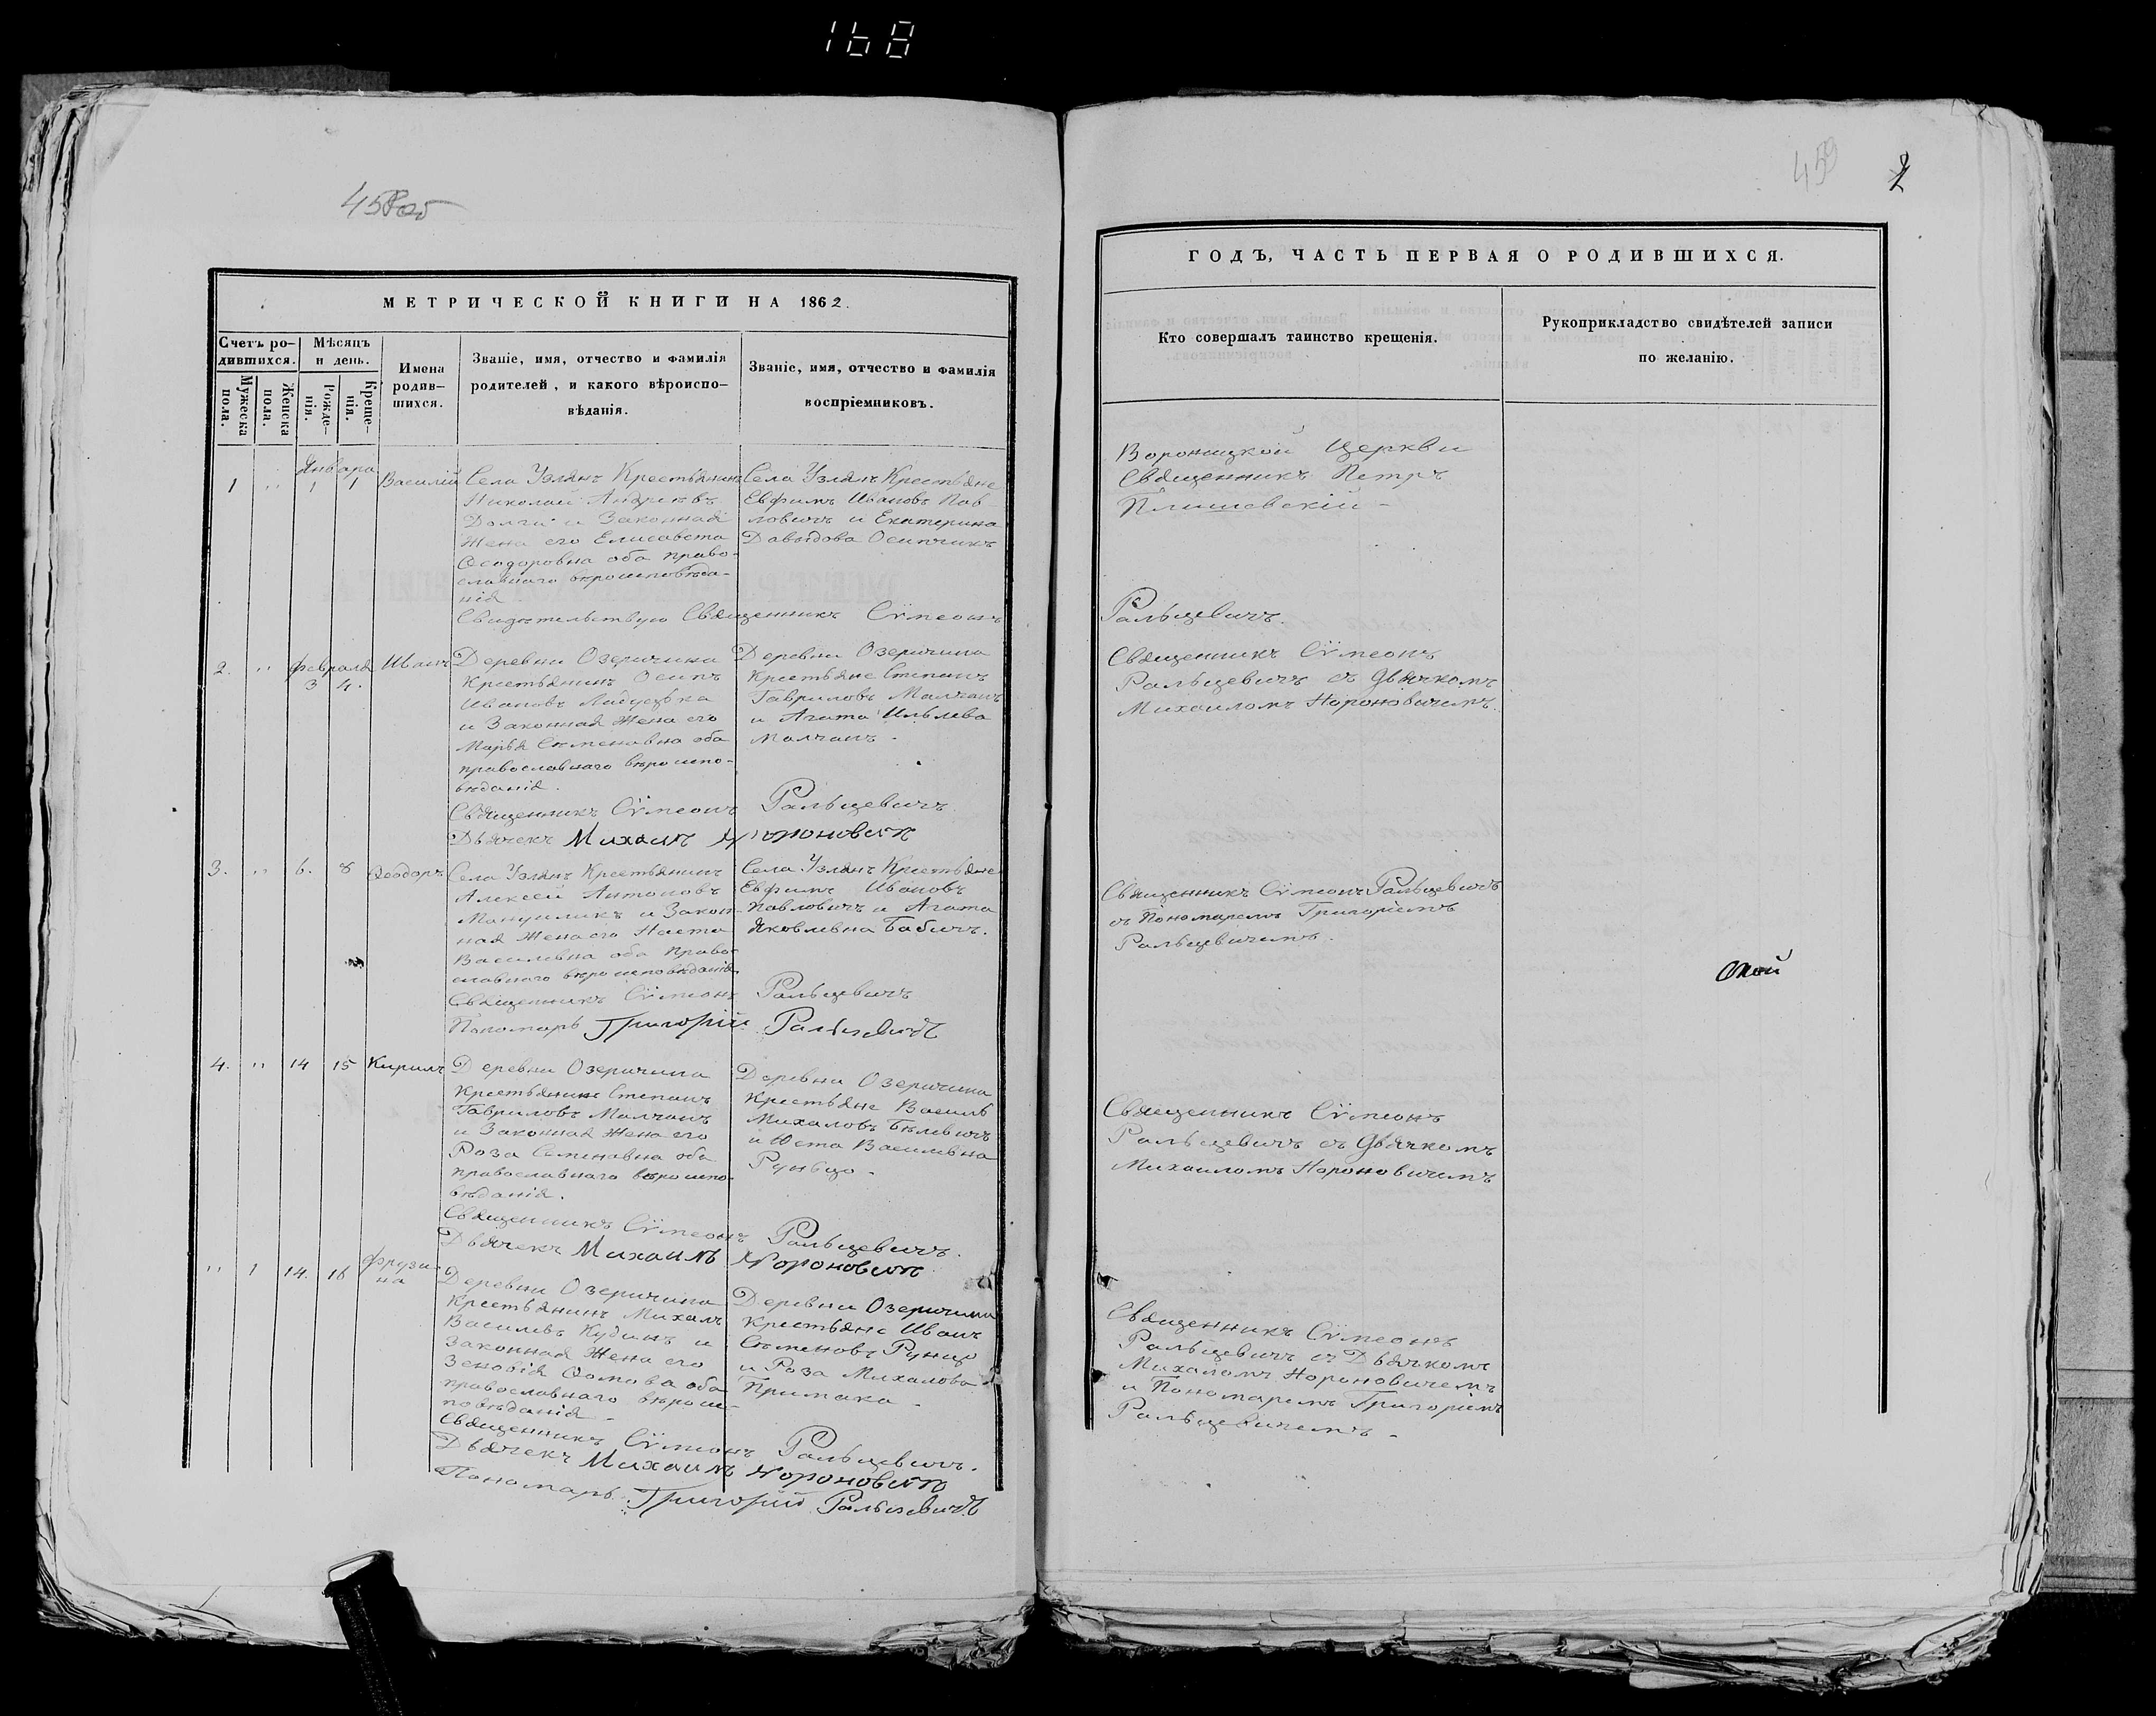 168
458 об
МЕТРИЧЕСКОЙ КНИГИ НА 1862.
Счетъ ро-
дившихся.
Мѣсяцъ
и день.
Мужеска
пола.
Женска
пола.
Рожде-
нія.
Креще-
нія.
Имена
родив-
шихся.
Званіе, имя, отчество и фамилія
родителей, и какого вѣроиспо-
вѣданія.
Званіе, имя, отчество и фамилія
воспріемниковъ.
Января
1 " 1 1 Василій
Села Узлянъ Крестьянинъ
Николай Андреевъ
Долгій и Законная
Жена его Елисавета
Ѳеодоровна оба право-
славнаго вѣроисповѣда-
нія
Села Узлянъ Крестьяне
Евфимъ Ивановъ Пав
ловичъ и Екатерина
Давыдова Осипчикъ
Свидѣтельствую Священникъ Сѵмеонъ
2. " Февраля 3 4. Иванъ
Деревни Озеричина
Крестьянинъ Осипъ
Ивановъ
и Законная Жена его
Марья Семеновна оба
православнаго вѣроиспо-
вѣданія.
Деревни Озеричина
Крестьяне Степанъ
Гавриловъ Малчанъ
и Агата Ильева
Малчанъ -
Священникъ Сѵмеонъ Ральцевичъ
Дьячекъ Михаилъ Нороновичъ
3. " 6. 8 Ѳеодоръ
Села Узлянъ Крестьянинъ
Алексей Антоновъ
Мануиликъ и Закон-
ная Жена его Наста
Василевна оба Право-
славнаго вѣроисповѣданія
Села Узлянъ Крестьяне
Евфимъ Ивановъ
Павловичъ и Агата
Яковлевна Бабичъ.
Священникъ Сѵмеонъ Ральцевичъ
Пономарь Григорій Ральцевичъ
4. " 14 15 Кирилъ
Деревни Озеричина
Крестьянинъ Степанъ
Гавриловъ Малчанъ
и Законная Жена его
Роза Семеновна оба
православнаго вѣроиспо-
вѣданія.
Деревни Озеричина
Крестьяне Василь
Михаловъ Бѣлевичъ
и Юста Василевна
Рунцо -
Священникъ Сѵмеонъ Ральцевичъ.
Дьячекъ Михаилъ Нороновичъ
" 1 14. 16 Фрузи-
на
Деревни Озеричина
Крестьянинъ Михалъ
Василевъ Кудинъ и
Законная Жена его
Зеновія Ѳомова оба
православнаго вѣроис-
повѣданія -
Деревни Озеричина
Крестьяне Иванъ
Семеновъ Рунцо
и Роза Михалова
Примака -
Священникъ Сѵмеонъ Ральцевичъ.
Дьячекъ Михаилъ Нороновичъ
Пономарь Григорій Ральцевичъ
459 2
ГОДЪ, ЧАСТЬ ПЕРВАЯ О РОДИВШИХСЯ.
Кто совершалъ таинство крещенія.
Рукоприкладство свидѣтелей записи
по желанію.
Вороницкой Церкви
Священникъ Петръ
Плишевскій -
Ральцевичъ.
Священникъ Сѵмеонъ
Ральцевичъ съ Дьячкомъ
Михаиломъ Нороновичемъ.
Священникъ Сѵмеонъ Ральцевичъ
съ Пономаремъ Григоріемъ
Ральцевичемъ.
Священникъ Сѵмеонъ
Ральцевичъ съ Дьячкомъ
Михаиломъ Нороновичемъ
Священникъ Сѵмеонъ
Ральцевичъ съ Дьячкомъ
Михаломъ Нороновичемъ
и Пономаремъ Григоріемъ
Ральцевичемъ -